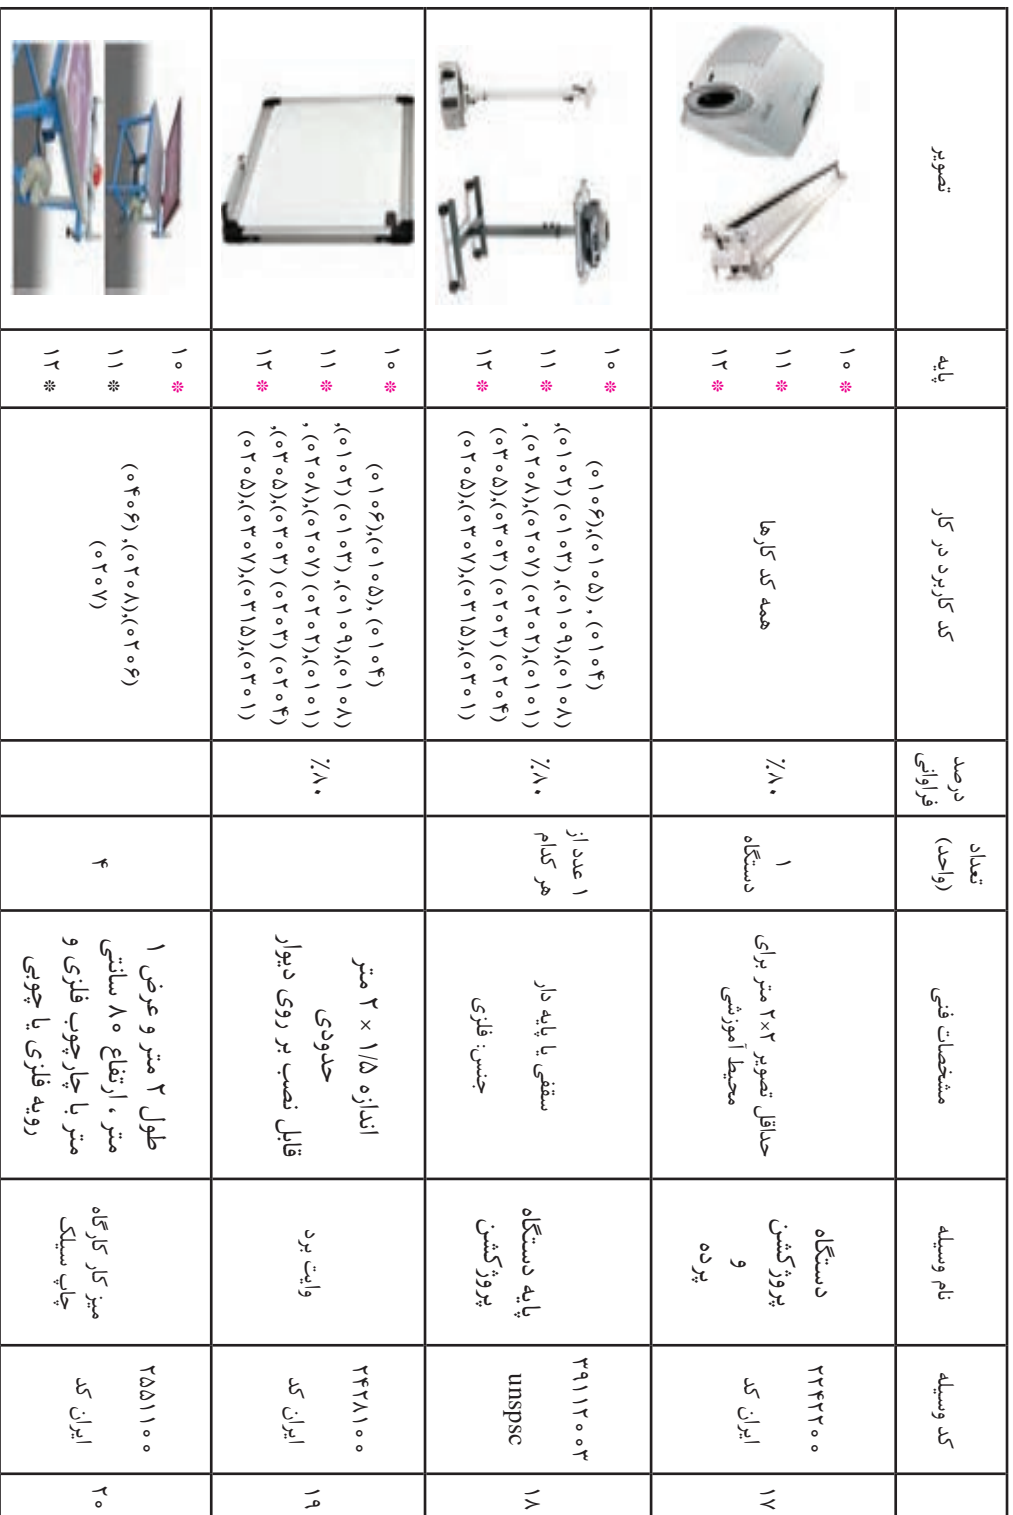 کد وسیله
نام وسیله
مشخصات فنی
تعداد
(واحد)
درصد
فراوانی
کد کاربرد در کار
پایه
تصویر
۱۷
۲۲۴۲۲۰۰
ایران کد
دستگاه
پروژکشن
و
پرده
حداقل تصویر ۲×۲ متر برای
محیط آموزشی
۱
دستگاه
٪۸۰
همه کد کارها
۱۰ *
۱۱ *
۱۲ *
۱۸
۳۹۱۱۲۰۰۳
unspsc
پایه دستگاه
پروژکشن
سقفی یا پایه دار
جنس: فلزی
۱ عدد از
هر کدام
٪۸۰
(۰۱۰۶),(۰۱۰۵) , (۰۱۰۴)
,(۰۱۰۲) (۰۱۰۳) ,(۰۱۰۹),(۰۱۰۸)
, (۰۲۰۸),(۰۲۰۷) (۰۲۰۲),(۰۱۰۱)
(۰۳۰۵),(۰۳۰۳) (۰۲۰۳) (۰۲۰۴)
(۰۲۰۵),(۰۳۰۷),(۰۳۱۵),(۰۳۰۱)
۱۰ *
۱۱ *
۱۲ *
۱۹
۲۴۲۸۱۰۰
ایران کد
وایت برد
اندازه ۱/۵ × ۲ متر
حدودی
قابل نصب بر روی دیوار
٪۸۰
(۰۱۰۶),(۰۱۰۵) ,(۰۱۰۴)
,(۰۱۰۲) (۰۱۰۳) ,(۰۱۰۹),(۰۱۰۸)
, (۰۲۰۸),(۰۲۰۷) (۰۲۰۲),(۰۱۰۱)
,(۰۳۰۵),(۰۳۰۳) (۰۲۰۳) (۰۲۰۴)
(۰۲۰۵),(۰۳۰۷),(۰۳۱۵),(۰۳۰۱)
۱۰ *
۱۱ *
۱۲ *
۲۰
۲۵۵۱۱۰۰
ایران کد
میز کار کارگاه
چاپ سیلک
طول ۲ متر و عرض ۱
متر ، ارتفاع ۸۰ سانتی
متر با چارچوب فلزی و
رویه فلزی یا چوبی
۴
(۰۴۰۶) ,(۰۲۰۸),(۰۲۰۶)
(۰۲۰۷)
۱۰ *
۱۱ *
۱۲ *